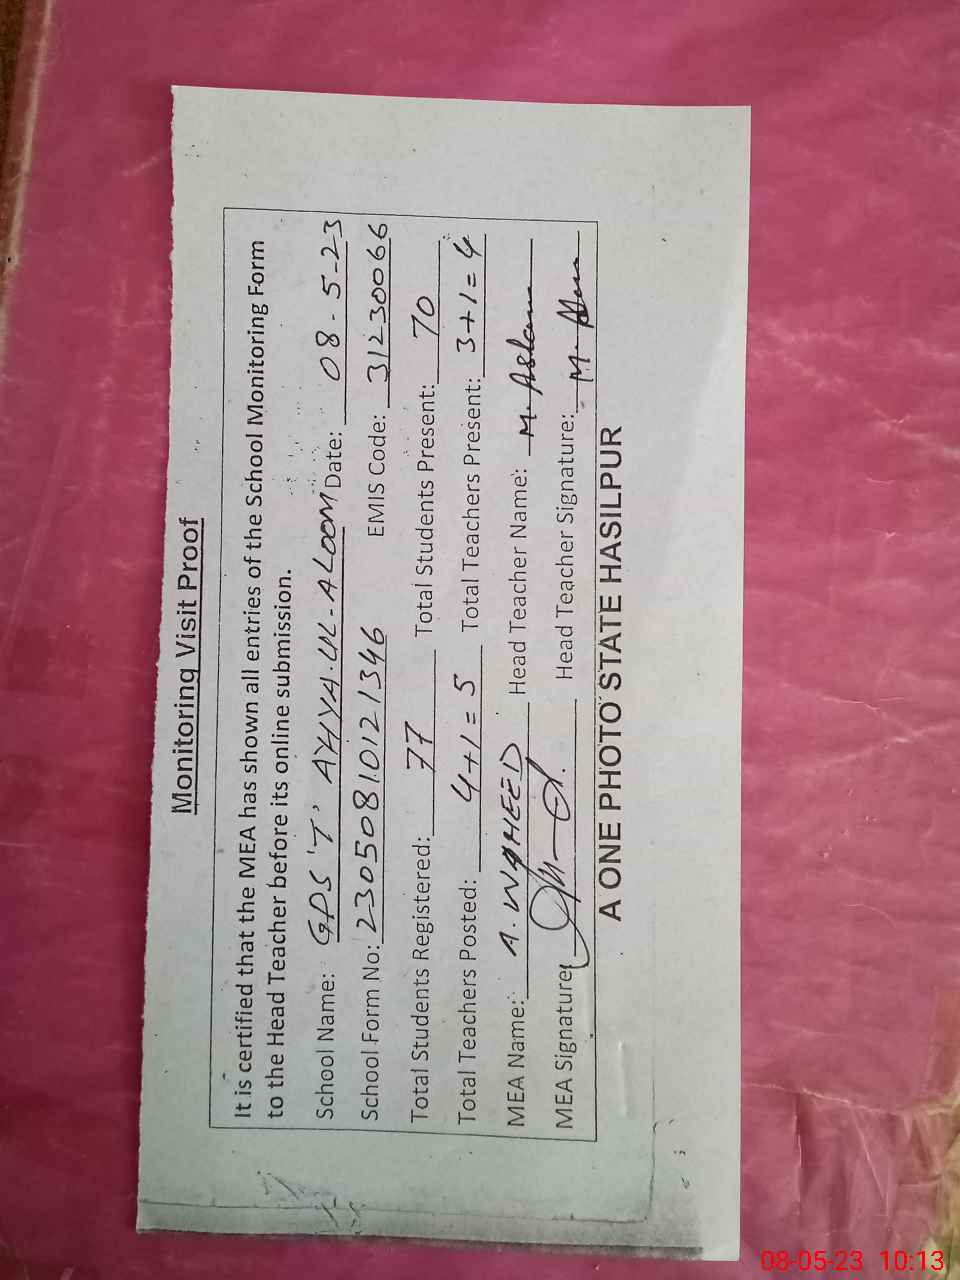 Monitoring Visit Proof
It is certified that the MEA has shown all entries of the School Monitoring Form
to the Head Teacher before its online submission.
School Name: GPS 'T' AHYA-UL-ALOOM Date: 08-5-23
School Form No: 23050810121346 EMIS Code: 31230066
Total Students Registered: 77 Total Students Present: 70
Total Teachers Posted: 4+1=5 Total Teachers Present: 3+1=4
MEA Name: A. WAHEED Head Teacher Name: M. Aslam
MEA Signature: Head Teacher Signature: M.
A ONE PHOTO STATE HASILPUR
08-05-23 10:13